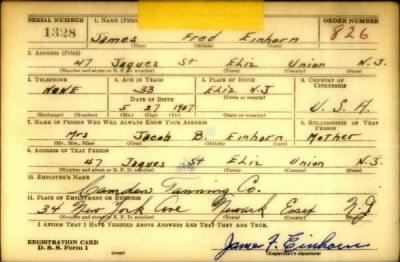 SERIAL NUMBER 1. NAME (Print) ORDER NUMBER
1328 James Fred Einhorn 826
(First) (Middle) (Last)
2. ADDRESS (Print)
47 Jaques St Eliz Union N.J.
(Number and street or R. F. D. number) (Town) (County) (State)
3. TELEPHONE 4. AGE IN YEARS 5. PLACE OF BIRTH 6. COUNTRY OF CITIZENSHIP
NONE 33 Eliz N.J
DATE OF BIRTH (Town or county)
5 27 1907 U.S.A.
(Mo.) (Day) (Yr.) (State or country)
7. NAME OF PERSON WHO WILL ALWAYS KNOW YOUR ADDRESS 8. RELATIONSHIP OF THAT PERSON
Mrs Jacob B. Einhorn Mother
(Mr., Mrs., Miss) (First) (Middle) (Last)
9. ADDRESS OF THAT PERSON
47 Jaques St Eliz Union N.J.
(Number and street or R. F. D. number) (Town) (County) (State)
10. EMPLOYER'S NAME
Camden Tanning Co.
11. PLACE OF EMPLOYMENT OR BUSINESS
34 New York Ave Newark Essex N.J
(Number and street or R. F. D. number) (Town) (County) (State)
I AFFIRM THAT I HAVE VERIFIED ABOVE ANSWERS AND THAT THEY ARE TRUE.
REGISTRATION CARD James F. Einhorn
D. S. S. Form 1 (over) (Registrant's signature)